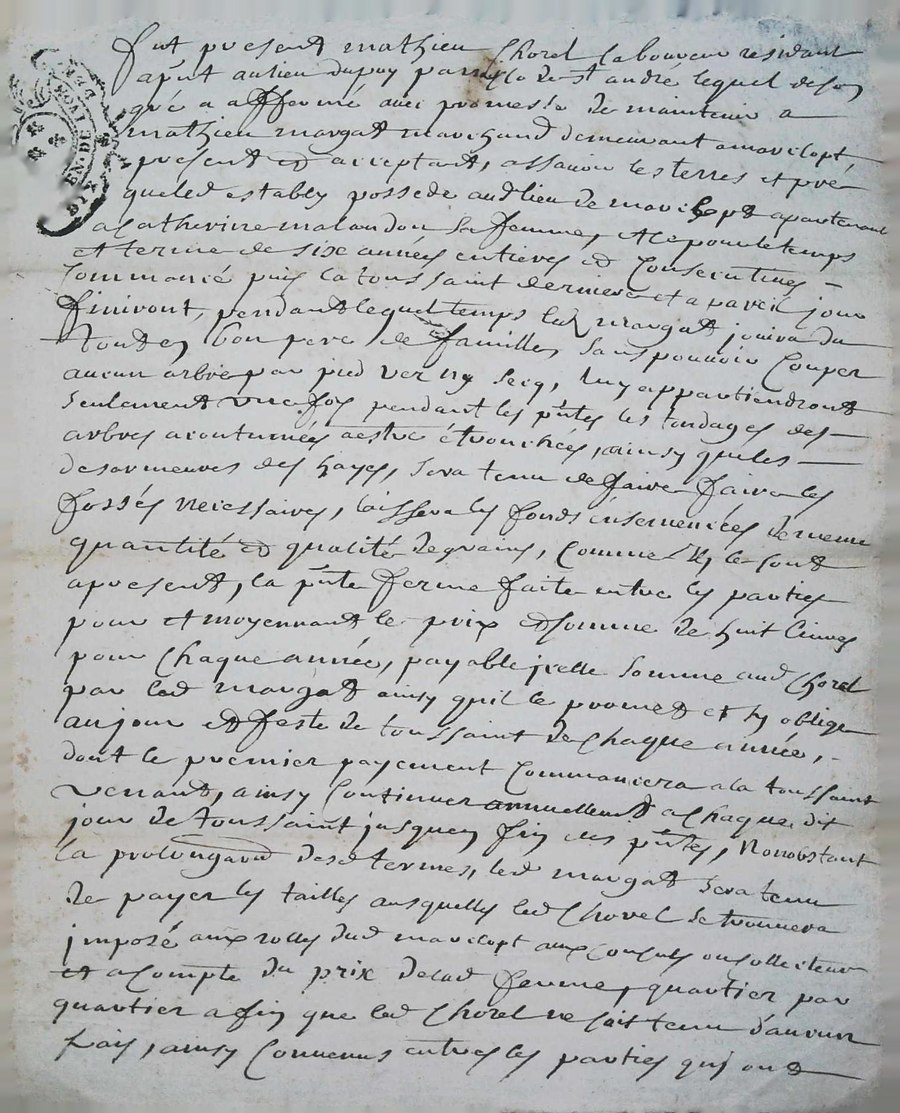 fut present mathieu Chorel laboureur residant
apñt au lieu dupuy parroisse de st andre lequel deson
gré a affermé avec promesse de maintenir a
mathieu margat marchand demeurant a marclopt
present et acceptant, assavoir les terres et pré
queled estably possede aud lieu de marclopt apartenant
a Catherine malandon sa femme, et ce pour le temps
et terme de six années entieres et Consecutives –
Commancé puis la toussaint derniere et a pareil jour
finiront, pendant lequel temps led margat jouira du
tout en bon pere de famille, sans pouvoir Couper
aucun arbre par pied ver ny secq, luy appartiendront
seulement une foy pendant les pñtes les tondages des –
arbres acoutumées aestre étronchées, ainsy que les –
des hayes, sera tenu de faire faire les
fossés necessaires, laissera les fonds ensemencées de meme
quantité et qualité de grains, Comme ils le sont
apresent, la pñte ferme faite entre les parties
pour et moyennant le prix et somme de huit livres
pour Chaque année, payable jcelle somme aud Chorel
par led margat ainsy quil le promet et sy oblige
au jour et feste de toussaint de Chaque année, –
dont le premier payement Commancera a la toussaint
venant, ainsy Continuer annuellement a Chaque dit
jour de toussaint jusquen fin des pñtes, Nonobstant
la prolongaõn desd termes, led margat sera tenu
de payer les tailles ausquelles led Chorel se trouvera
jmposé aux rolles dud marclopt aux Consuls ou Collecteur
et a Compte du prix delad ferme, quartier par
quartier affin que led Chorel ne soit tenu d'aucun
frais, ainsy Convenus entre les parties quj ont